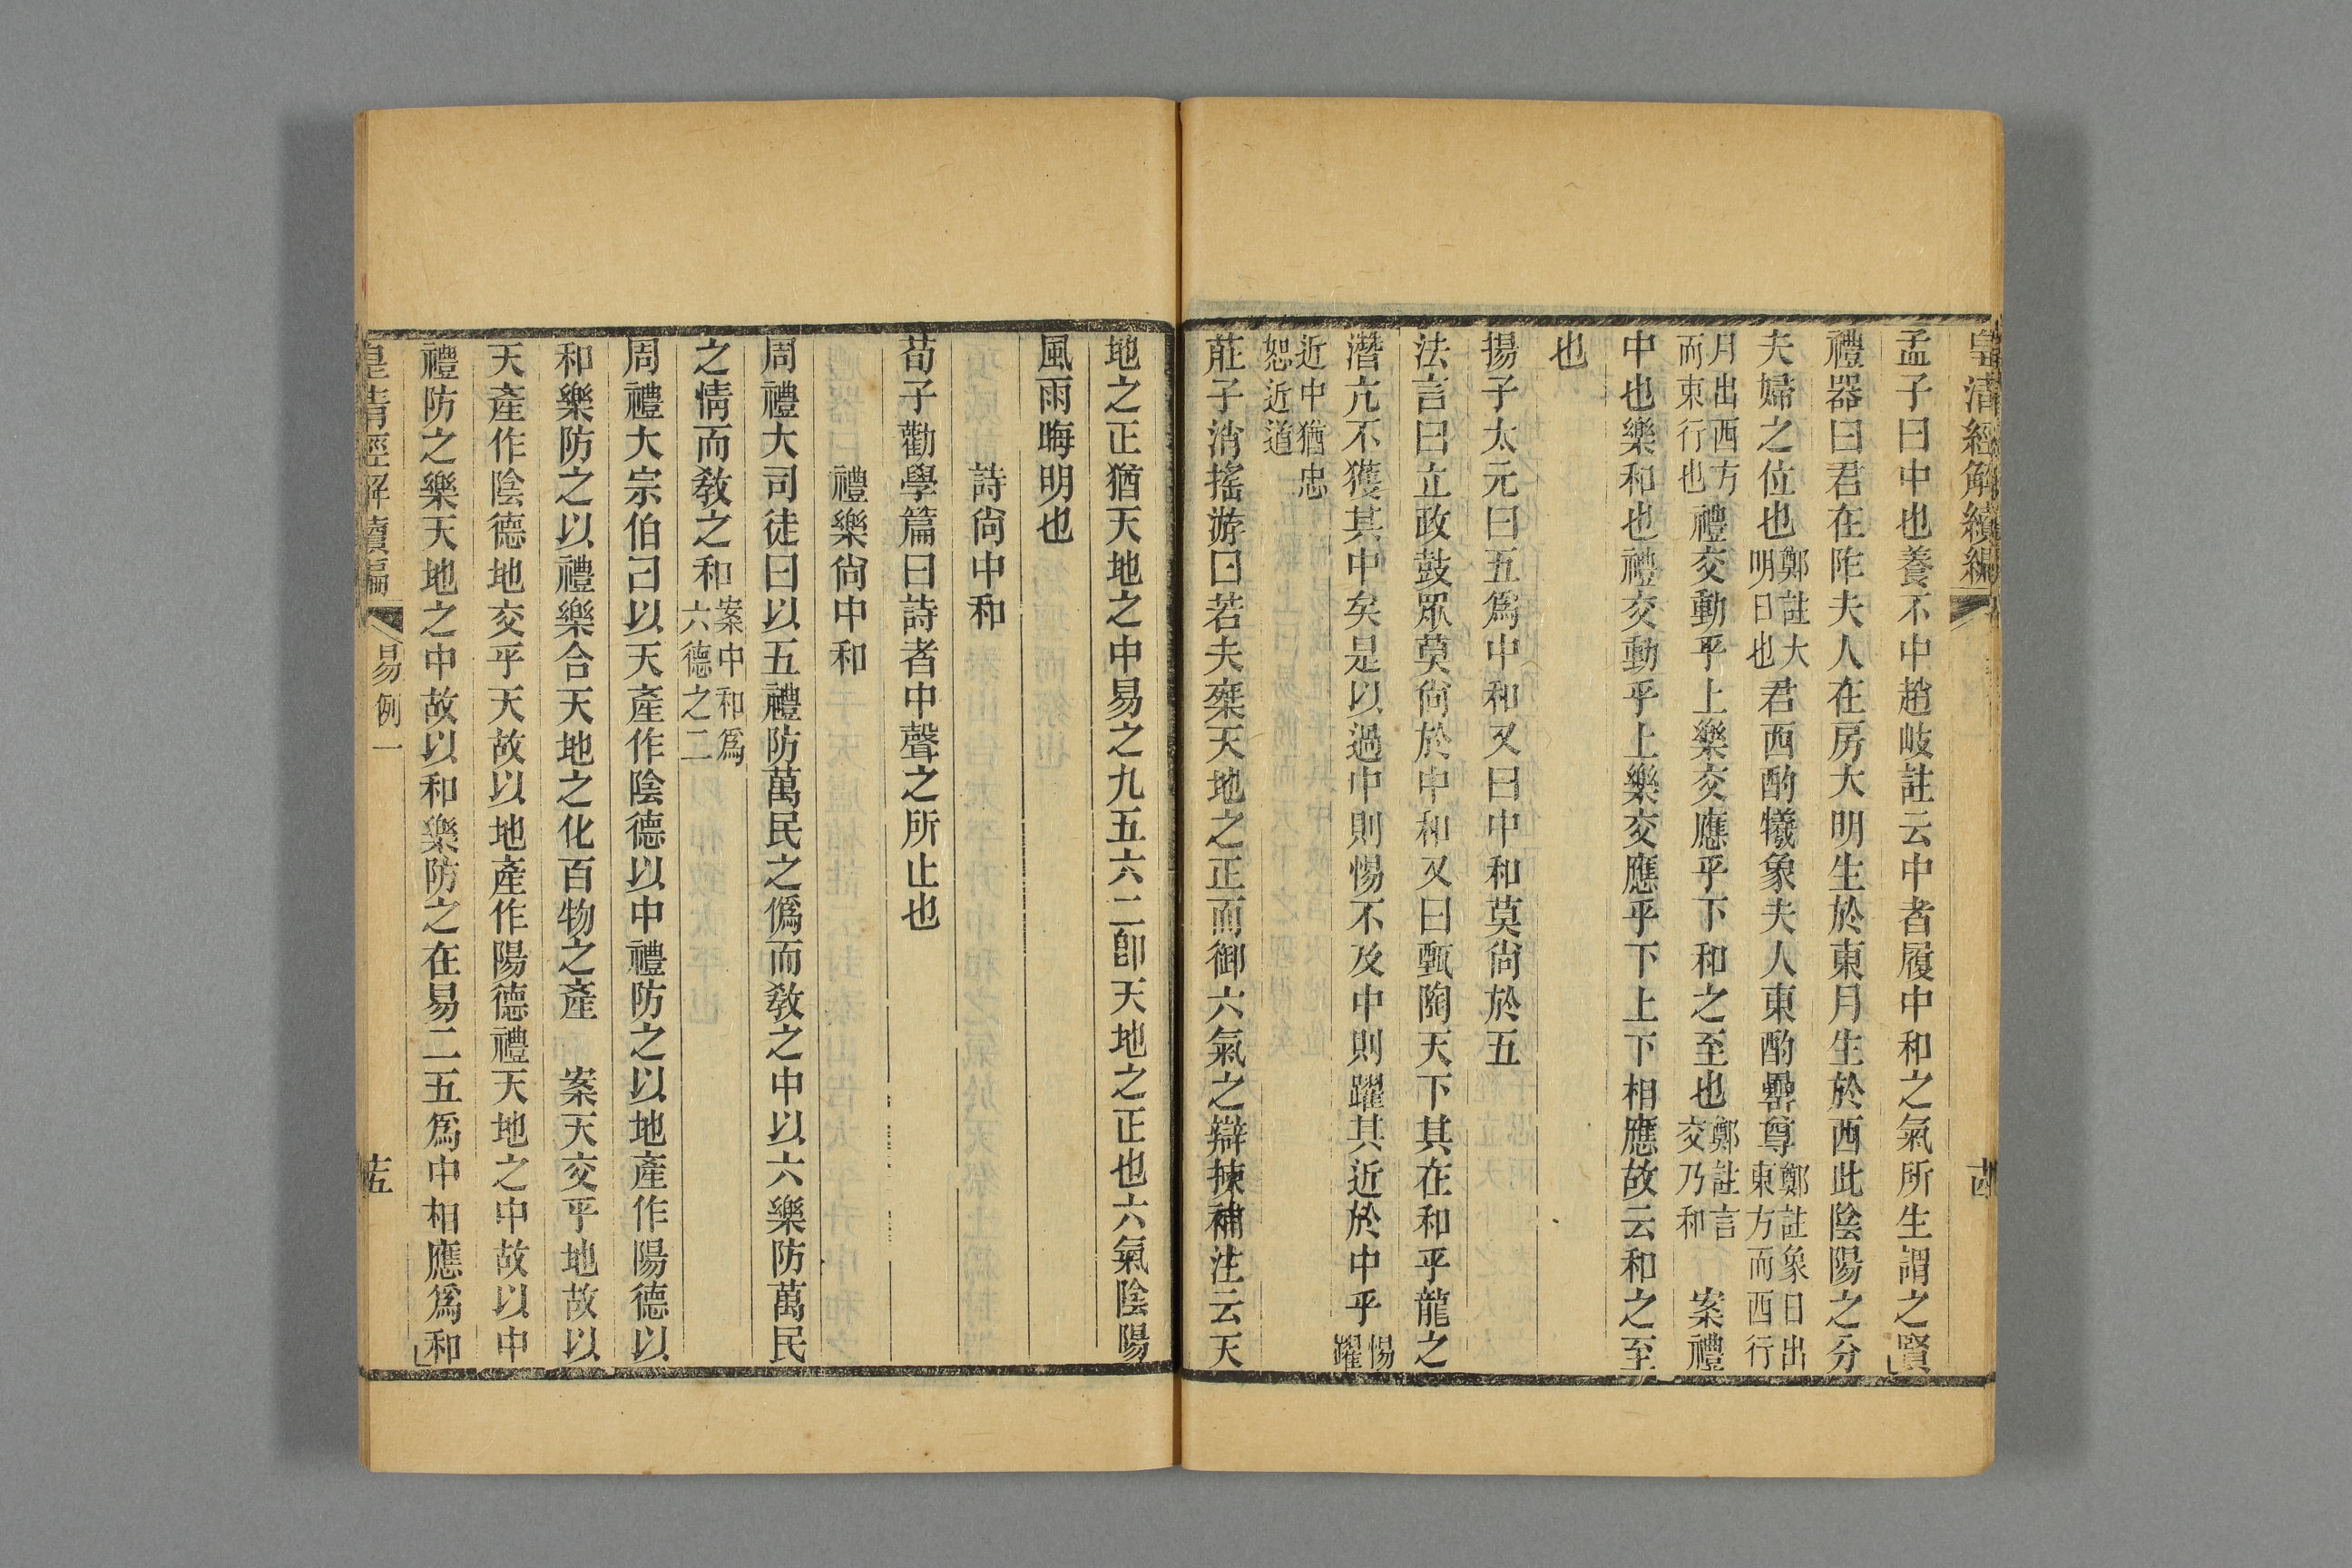 皇清經解續編
孟子曰中也養不中趙岐註云中者履中和之氣所生謂之賢
禮器曰君在阼夫人在房大明生於東月生於西此陰陽之分
夫婦之位也鄭註大明日也君西酌犧象夫人東酌罍尊鄭註象日出東方而西行
月出西方而東行也禮交動乎上樂交應乎下和之至也鄭註言交乃和 案禮
中也樂和也禮交動乎上樂交應乎下上下相應故云和之至
也
揚子太元曰五爲中和又曰中和莫尙於五
法言曰立政鼓眾莫尙於中和又曰甄陶天下其在和乎龍之
潛亢不獲其中矣是以過中則惕不及中則躍其近於中乎惕躍
近中猶忠恕近道
莊子消搖游曰若夫椉天地之正而御六氣之辯揀補注云天
十四
地之正猶天地之中易之九五六二卽天地之正也六氣陰陽
風雨晦明也
詩尙中和
荀子勸學篇曰詩者中聲之所止也
禮樂尙中和
周禮大司徒曰以五禮防萬民之僞而敎之中以六樂防萬民
之情而敎之和案中和爲六德之二
周禮大宗伯曰以天產作陰德以中禮防之以地產作陽德以
和樂防之以禮樂合天地之化百物之產 案天交乎地故以
天產作陰德地交乎天故以地產作陽德禮天地之中故以中
禮防之樂天地之中故以和樂防之在易二五爲中相應爲和
皇清經解續編 易例一 十五